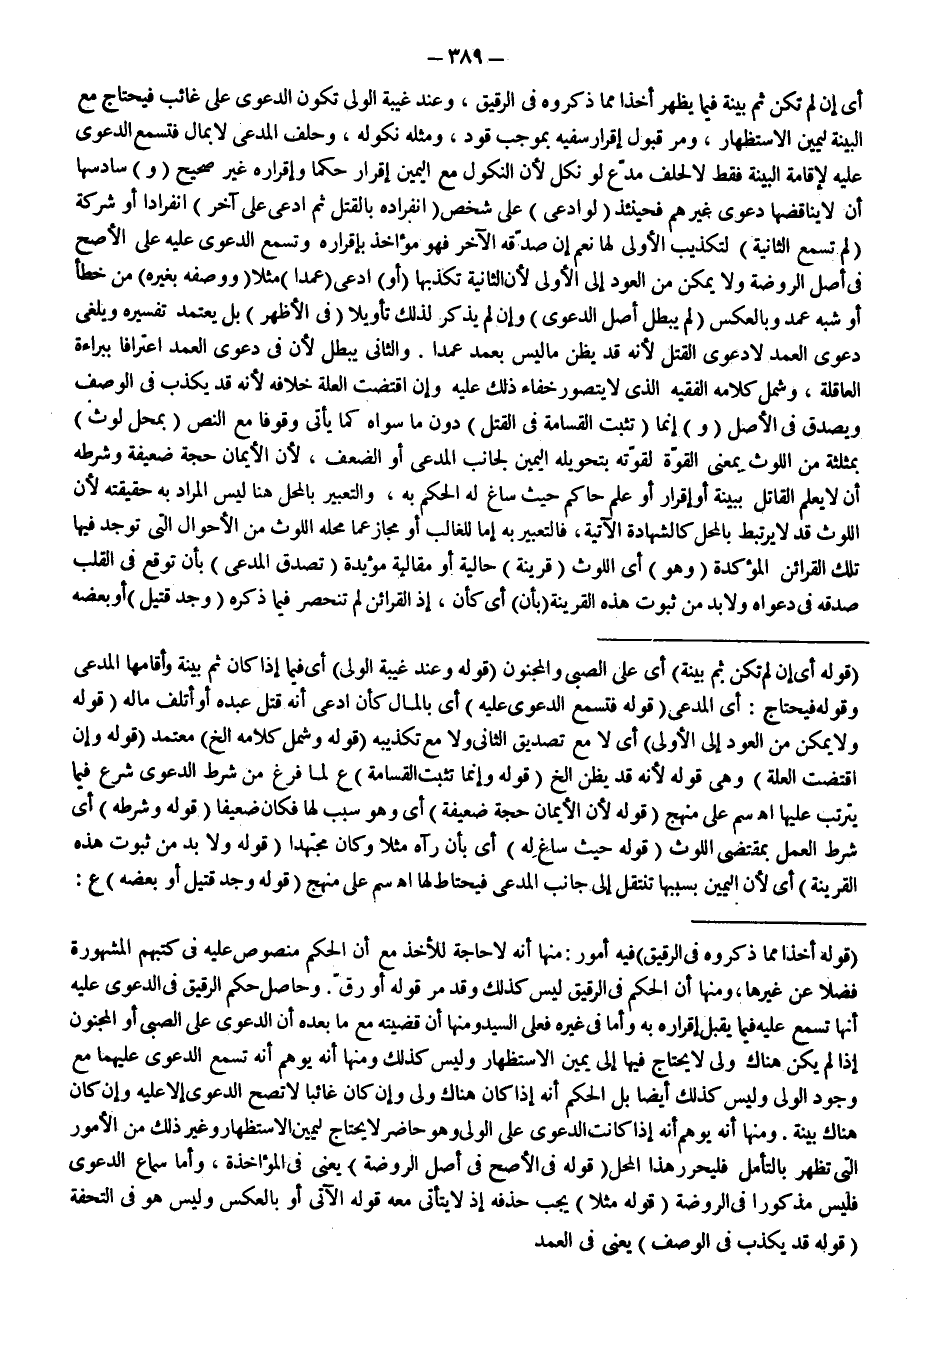 — ٣٨٩ —
أى إن لم تكن ثم بينة فيما يظهر أخذا مما ذكروه فى الرقيق ، وعند غيبة الولى تكون الدعوى على غائب فيحتاج مع
البينة ليمين الاستظهار ، ومر قبول إقرار سفيه بموجب قود ، ومثله نكوله ، وحلف المدعى لا بمال فتسمع الدعوى
عليه لإقامة البينة فقط لا لحلف مدّع لو نكل لأن النكول مع اليمين إقرار حكما وإقراره غير صحيح ( و ) سادسها
أن لا يناقضها دعوى غيرهم فحينئذ ( لو ادعى ) على شخص ( انفراده بالقتل ثم ادعى على آخر ) انفرادا أو شركة
( لم تسمع الثانية ) لتكذيب الأولى لها نعم إن صدّقه الآخر فهو مؤاخذ بإقراره وتسمع الدعوى عليه على الأصح
فى أصل الروضة ولا يمكن من العود إلى الأولى لأن الثانية تكذبها (أو) ادعى (عمدا ) مثلا ( ووصفه بغيره) من خطأ
أو شبه عمد وبالعكس ( لم يبطل أصل الدعوى ) وإن لم يذكر لذلك تأويلا ( فى الأظهر ) بل يعتمد تفسيره ويلغى
دعوى العمد لا دعوى القتل لأنه قد يظن ما ليس بعمد عمدا . والثانى يبطل لأن فى دعوى العمد اعترافا ببراءة
العاقلة ، وشمل كلامه الفقيه الذى لا يتصور خفاء ذلك عليه وإن اقتضت العلة خلافه لأنه قد يكذب فى الوصف
ويصدق فى الأصل ( و ) إنما ( تثبت القسامة فى القتل ) دون ما سواه كما يأتى وقوفا مع النص ( بمحل لوث )
بمثلثة من اللوث بمعنى القوّة لقوّته بتحويله اليمين لجانب المدعى أو الضعف ، لأن الأيمان حجة ضعيفة وشرطه
أن لا يعلم القاتل ببينة أو إقرار أو علم حاكم حيث ساغ له الحكم به ، والتعبير بالمحل هنا ليس المراد به حقيقته لأن
اللوث قد لا يرتبط بالمحل كالشهادة الآتية ، فالتعبير به إما للغالب أو مجاز عما محله اللوث من الأحوال التى توجد فيها
تلك القرائن المؤكدة ( وهو ) أى اللوث ( قرينة ) حالية أو مقالية مؤيدة ( تصدق المدعى ) بأن توقع فى القلب
صدقه فى دعواه ولابد من ثبوت هذه القرينة (بأن) أى كأن ، إذ القرائن لم تنحصر فيما ذكره ( وجد قتيل ) أو بعضه
(قوله أى إن لم تكن ثم بينة) أى على الصبى والمجنون (قوله وعند غيبة الولى) أى فيما إذا كان ثم بينة وأقامها المدعى
وقوله فيحتاج : أى المدعى ( قوله فتسمع الدعوى عليه ) أى بالمال كأن ادعى أنه قتل عبده أو أتلف ماله ( قوله
ولا يمكن من العود إلى الأولى) أى لا مع تصديق الثانى ولا مع تكذيبه (قوله وشمل كلامه الخ) معتمد (قوله وإن
اقتضت العلة ) وهى قوله لأنه قد يظن الخ ( قوله وإنما تثبت القسامة ) ع لما فرغ من شرط الدعوى شرع فيما
يترتب عليها اه سم على منهج ( قوله لأن الأيمان حجة ضعيفة ) أى وهو سبب لها فكان ضعيفا ( قوله وشرطه ) أى
شرط العمل بمقتضى اللوث ( قوله حيث ساغ له ) أى بأن رآه مثلا وكان مجتهدا ( قوله ولا بد من ثبوت هذه
القرينة ) أى لأن اليمين بسببها تنتقل إلى جانب المدعى فيحتاط لها اه سم على منهج ( قوله وجد قتيل أو بعضه ) ع :
(قوله أخذا مما ذكروه فى الرقيق) فيه أمور : منها أنه لا حاجة للأخذ مع أن الحكم منصوص عليه فى كتبهم المشهورة
فضلا عن غيرها ، ومنها أن الحكم فى الرقيق ليس كذلك وقد مر قوله أو رقّ . وحاصل حكم الرقيق فى الدعوى عليه
أنها تسمع عليه فيما يقبل إقراره به وأما فى غيره فعلى السيد ومنها أن قضيته مع ما بعده أن الدعوى على الصبى أو المجنون
إذا لم يكن هناك ولى لا يحتاج فيها إلى يمين الاستظهار وليس كذلك ومنها أنه يوهم أنه تسمع الدعوى عليهما مع
وجود الولى وليس كذلك أيضا بل الحكم أنه إذا كان هناك ولى وإن كان غائبا لا تصح الدعوى إلا عليه وإن كان
هناك بينة . ومنها أنه يوهم أنه إذا كانت الدعوى على الولى وهو حاضر لا يحتاج ليمين الاستظهار وغير ذلك من الأمور
التى تظهر بالتأمل فليحرر هذا المحل ( قوله فى الأصح فى أصل الروضة ) يعنى فى المؤاخذة ، وأما سماع الدعوى
فليس مذكورا فى الروضة ( قوله مثلا ) يجب حذفه إذ لا يتأتى معه قوله الآتى أو بالعكس وليس هو فى التحفة
( قوله قد يكذب فى الوصف ) يعنى فى العمد